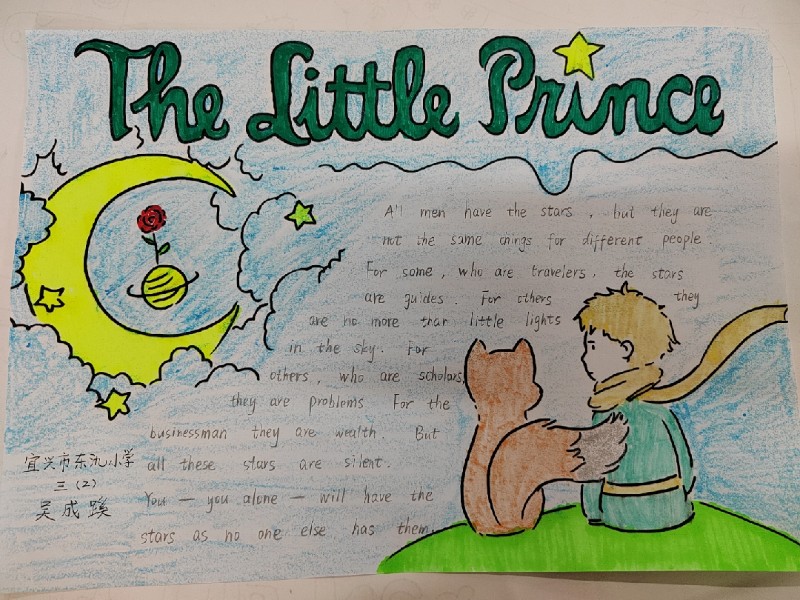 The Little Prince
All men have the stars, but they are
not the same things for different people.
For some, who are travelers, the stars
are guides. For others they
are no more than little lights
in the sky. For
others, who are scholars,
they are problems For the
businessman they are wealth. But
all these stars are silent.
You — you alone — will have the
stars as no one else has them.
宜兴市东氿小学
三(2)
吴成蹊